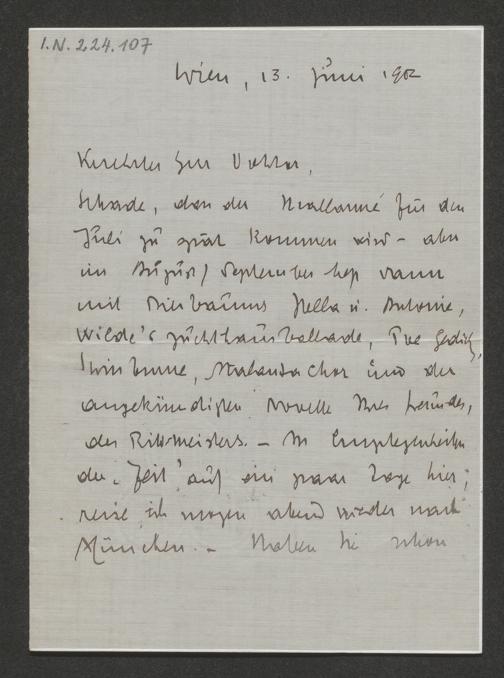 I.N. 224.107
Wien, 13. Juni 1902
Herr Doktor,
Schade, dass der Mallarmé für den
Juli zu spät kommen wird – aber
im August / September heft dann
mit Bierbaums Stella u. Antonie,
Wilde's Zuchthausballade, Gedicht,
Swinburne, und der
angekündigten Novelle Ihres Freundes,
des Rittmeisters. – In
der "Zeit" auf ein paar Tage hier;
reise ich morgen abend wieder nach
München. – Haben Sie schon